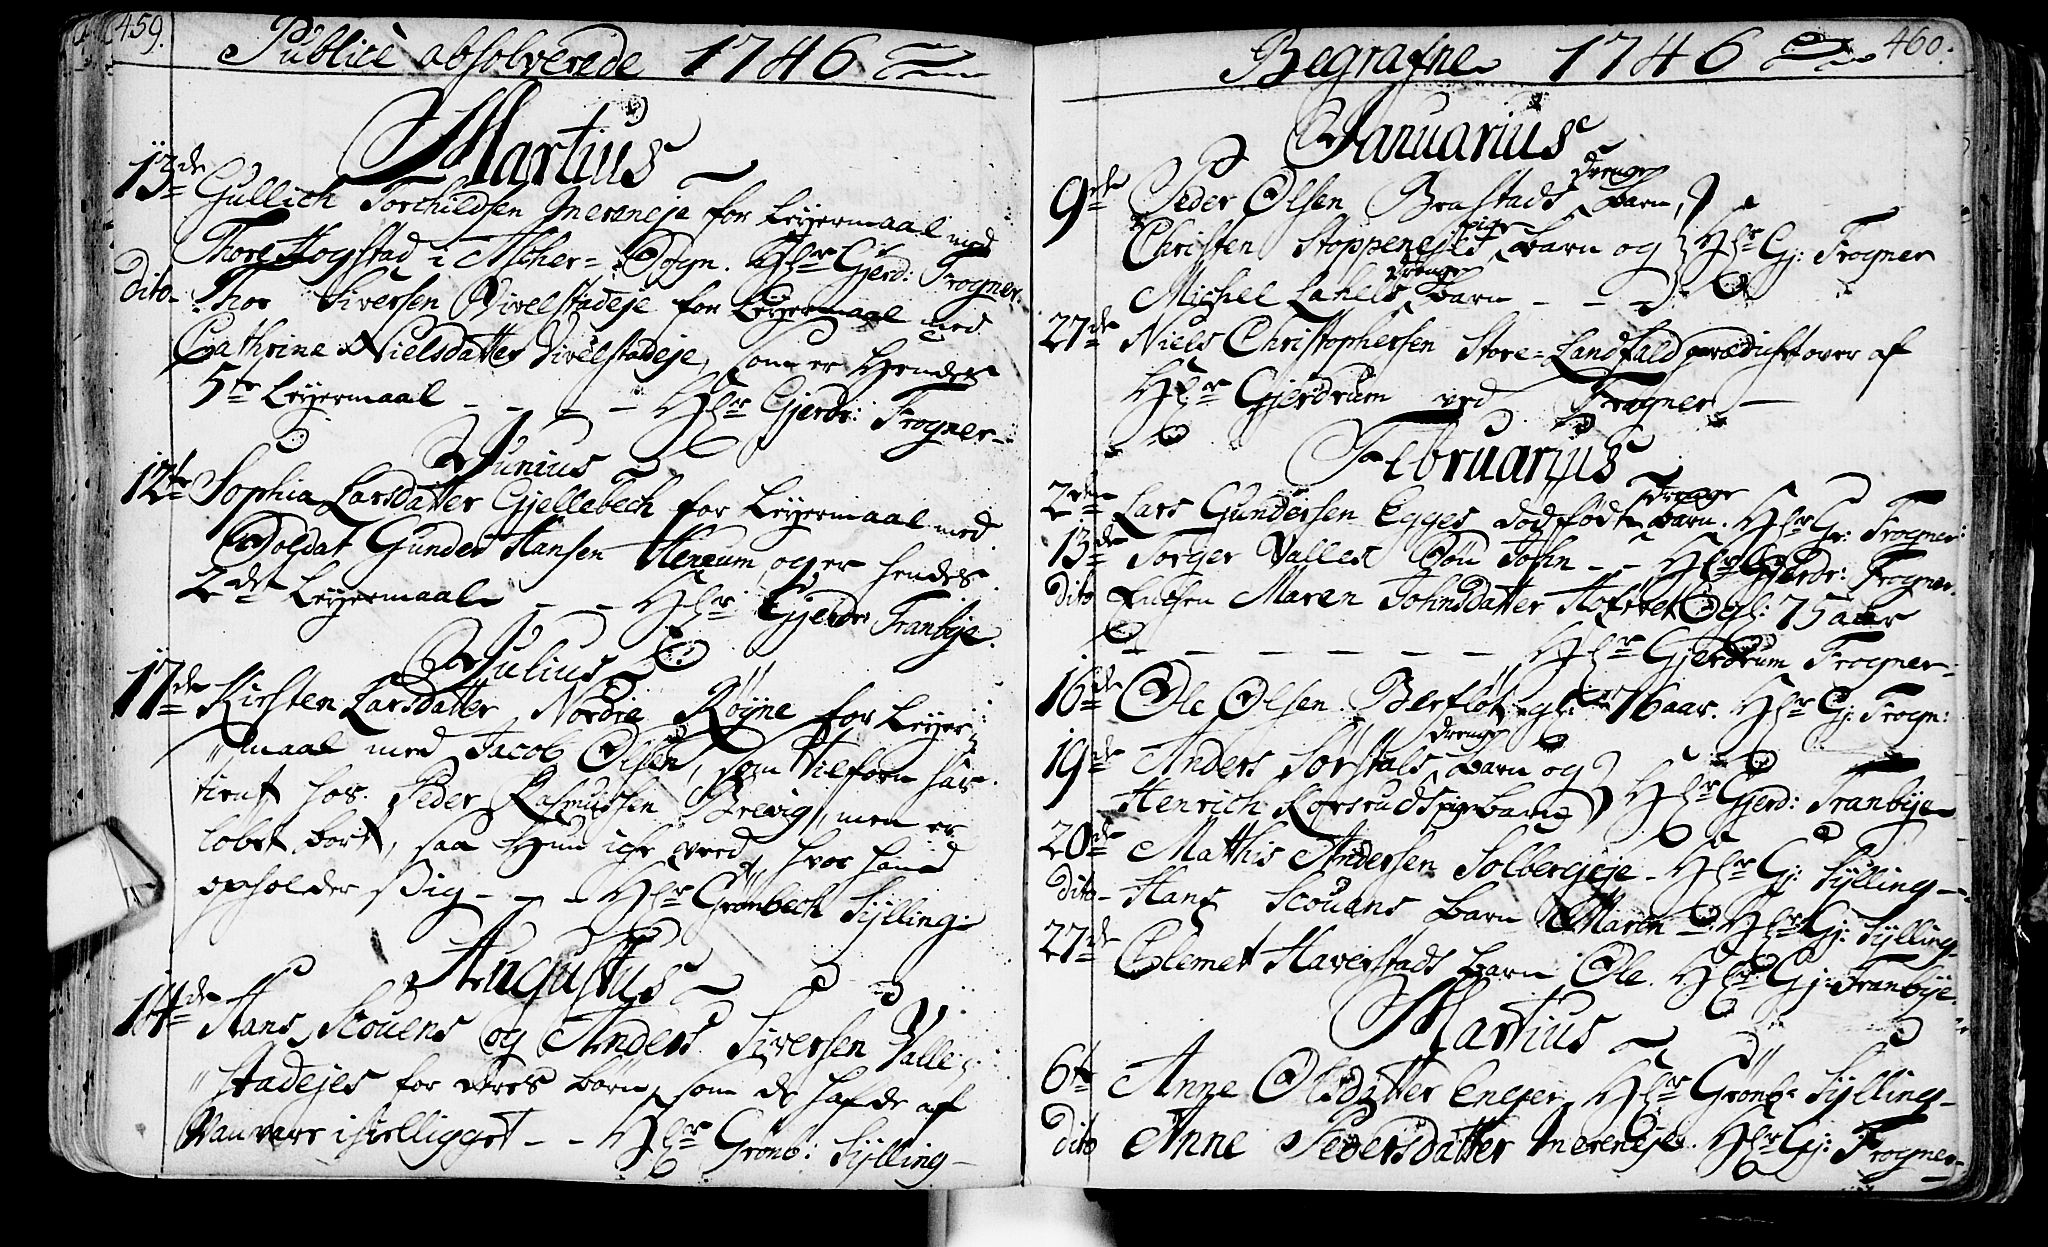 459.
Publicè absolverede 1746
Martius
13de Gullich Torchildsen Mereneje for Leyermaal med
Thore Hogstad i Asker-Sogn. Hr Gjerd: Frogner.
dito- Thor Siversen Vivelstadeje for Leyermaal med
Cathrine Nielsdatter Vivelstadeje, som er Hendes
5te Leyermaal - - - - Hr Gjerdr: Frogner-
Junius
12te Sophia Larsdatter Gjellebech for Leyermaal med
Soldat Gunder Hansen Hennum, og er hendes
2det Leyermaal - - Hr Gjerdr: Tranbye.
Julius
17de Kirsten Larsdatter Nordre Røyne for Leyer
maal med Jacob Olsen, som tilforn har
tient hos Peder Rasmussen Brevig, men er
løbet bort, saa Hun iche veed, hvor hand
opholder Sig - - - Hr Grønbech Sylling-
Augustus
14de Hans Scouens og Anders Siversen Valle
stadejes for deres Børn, som de hafde af
Vanvare ihielligget - - Hr Grønb: Sylling-
460.
Begrafne 1746
Januarius
9de Peder Olsen Brastads drenge Barn,
Christen Stoppenejes pige Barn og Hr Gj: Frogner
Michel Lahells drenge Barn - -
27de Niels Christophersen Store-Landfald prædichet over af
Hr Gjerdrum ved Frogner -
Februarius
2den Lars Gundersen Egges dødfødte drenge Barn. Hr Gr: Frogner:
13de Torger Valles Søn John - - Hr Gjerdr: Frogner.
dito Enchen Maren Johnsdatter Hofstet gl: 75 aar
- - - - - - Hr Gjerdrum Frogner-
16de Ole Olsen Berfløt, gl: 76 aar. Hr Gj: Frogn:
19de Anders Sørstals drenge Barn og
Henrich Korsruds pige Barn Hr Gjerd: Tranbye
20de Matthis Andersen Solbergeje - Hr Gj: Sylling-
dito- Hans Scouens Barn Maren - Hr Gj: Sylling-
27de Clemet Haverstads Barn Ole. Hr Gj: Tranbye.
Martius
6te Anne Olsdatter Enger, Hr Grønb: Sylling-
dito Anne Pedersdatter Mereneje. Hr Gj: Frogner-